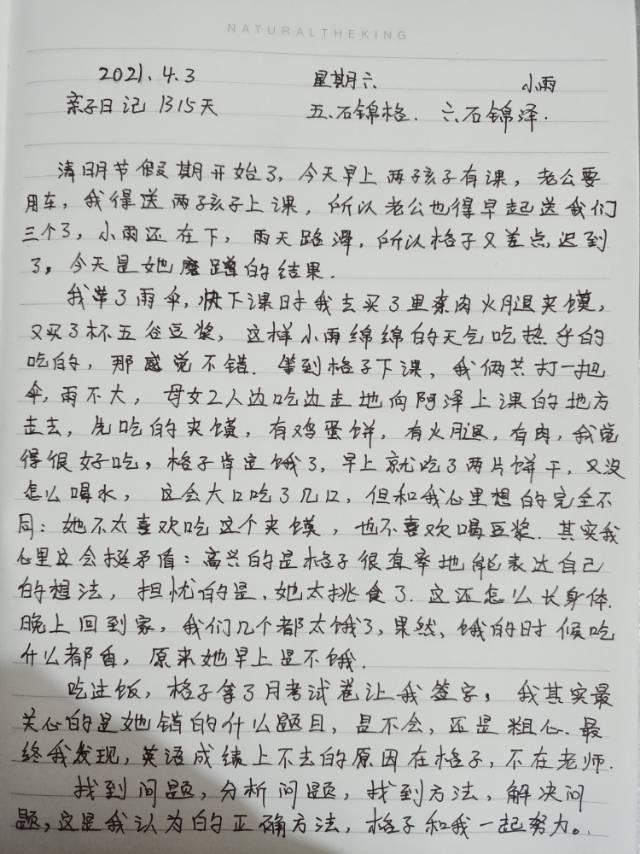 NATURALTHEKING
2021.4.3 星期六 小雨
亲子日记 1315天 五.石锦格. 六石锦泽.
清明节假期开始了,今天早上两孩子有课,老公要
用车,我得送两孩子上课,所以老公也得早起送我们
三个了,小雨还在下,雨天路滑,所以格子又差点迟到
了,今天是她磨蹭的结果.
我带了雨伞,快下课时我去买了里素肉火腿夹馍,
又买了杯五谷豆浆,这样小雨绵绵的天气吃热乎的
吃的,那感觉不错.等到格子下课,我俩共打一把
伞,雨不大,母女2人边吃边走地向阿泽上课的地方
走去,先吃的夹馍,有鸡蛋饼,有火腿,有肉,我觉
得很好吃,格子肯定饿了,早上就吃了两片饼干,又没
怎么喝水,这会大口吃了几口,但和我心里想的完全不
同:她不太喜欢吃这个夹馍,也不喜欢喝豆浆.其实我
心里这会挺矛盾:高兴的是格子很直率地能表达自己
的想法,担忧的是,她太挑食了.这还怎么长身体.
晚上回到家,我们几个都太饿了,果然、饿的时候吃
什么都香,原来她早上是不饿.
吃过饭,格子拿了月考试卷让我签字,我其实最
关心的是她错的什么题目,是不会,还是粗心.最
终我发现,英语成绩上不去的原因在格子,不在老师.
找到问题,分析问题,找到方法,解决问
题,这是我认为的正确方法,格子和我一起努力。